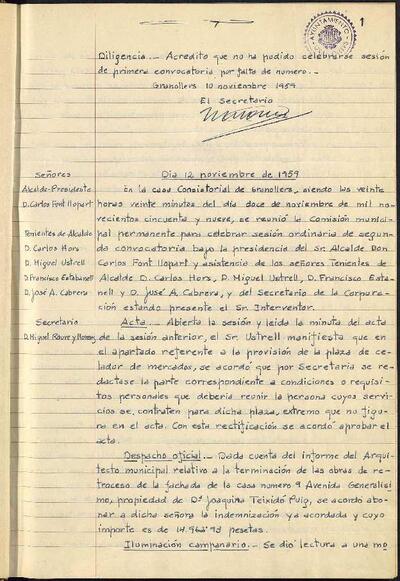 1
AYUNTAMIENTO
Diligencia.-- Acredito que no ha podido celebrarse sesión
de primera convocatoria por falta de numero.-
Granollers 10 noviembre 1959
El Secretario
Señores
Alcalde-Presidente
D. Carlos Font Llopart
Tenientes de Alcalde
D. Carlos Hors
D. Miguel Ustrell
D. Francisco Estabanell
D. José A. Cabrera
Secretario
D. Miguel
Dia 12 noviembre de 1959
En la casa Consistorial de Granollers, siendo las veinte
horas veinte minutos del dia doce de noviembre de mil no-
vecientos cincuenta y nueve, se reunió la Comisión munici-
pal permanente para celebrar sesión ordinaria de segun-
da convocatoria bajo la presidencia del Sr. Alcalde Don
Carlos Font Llopart y asistencia de los señores Tenientes de
Alcalde D. Carlos Hors, D. Miguel Ustrell, D. Francisco Esta-
nell y D. José A. Cabrera, y del Secretario de la Corporación
estando presente el Sr. Interventor.
Acta.- Abierta la sesión y leida la minuta del acta
de la sesión anterior, el Sr. Ustrell manifiesta que en
el apartado referente a la provisión de la plaza de ce-
lador de mercados, se acordó que por Secretaria se re-
dactase la parte correspondiente a condiciones o requisi-
tos personales que deberia reunir la persona cuyos servi-
cios se contraten para dicha plaza, extremo que no figu-
ra en el acta. Con esta rectificación se acordó aprobar el
acta.
Despacho oficial.- Dada cuenta del informe del Arqui-
tecto municipal relativo a la terminación de las obras de re-
troceso de la fachada de la casa numero 9 Avenida Generalisi-
mo, propiedad de Dª Joaquina Teixidó Puig, se acordo abo-
nar a dicha señora la indemnización ya acordada y cuyo
importe es de 14.962'98 pesetas.
Iluminación campanario.- Se dió lectura a una mo